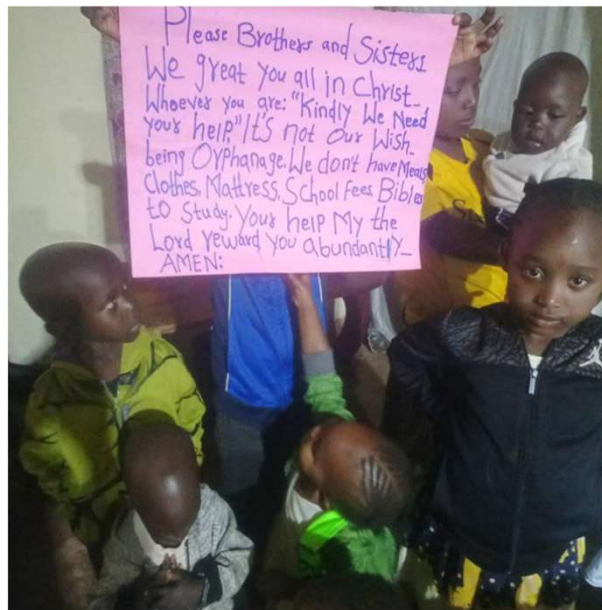 Please Brothers and Sisters
We great you all in Christ_
Whoever you are: "Kindly We Need
your help" It's not Our Wish_
being Orphanage. We don't have Meals
Clothes, Mattress, School Fees, Bibles
to Study. Your help My the
Lord reward you abundantly_
AMEN: